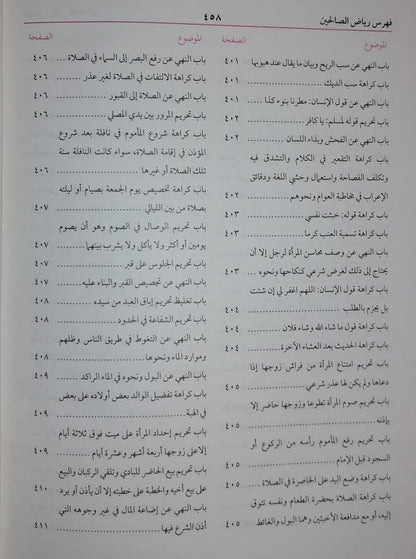 فهرس رياض الصالحين
٤٥٨
الموضوع الصفحة
باب النهي عن سب الريح وبيان ما يقال عند هبوبها ٤٠١
باب كراهة سب الديك ........ ٤٠١
باب النهي عن قول الإنسان: مطرنا بنوء كذا .... ٤٠١
باب تحريم قوله لمسلم: يا كافر ........ ٤٠٢
باب النهي عن الفحش وبذاء اللسان ........ ٤٠٢
باب كراهة التقعير في الكلام والتشدق فيه
وتكلف الفصاحة واستعمال وحشي اللغة ودقائق
الإعراب في مخاطبة العوام ونحوهم ........ ٤٠٢
باب كراهة قوله: خبثت نفسي ........ ٤٠٣
باب كراهة تسمية العنب كرما ........ ٤٠٣
باب النهي عن وصف محاسن المرأة لرجل إلا أن
يحتاج إلى ذلك لغرض شرعي كنكاحها ونحوه .. ٤٠٣
باب كراهة قول الإنسان: اللهم اغفر لي إن شئت
بل يجزم بالطلب ........ ٤٠٤
باب كراهة قول ما شاء الله وشاء فلان ........ ٤٠٤
باب كراهة الحديث بعد العشاء الآخرة ........ ٤٠٤
باب تحريم امتناع المرأة من فراش زوجها إذا
دعاها ولم يكن لها عذر شرعي ........ ٤٠٥
باب تحريم صوم المرأة تطوعا وزوجها حاضر إلا
بإذنه ........ ٤٠٥
باب تحريم رفع المأموم رأسه من الركوع أو
السجود قبل الإمام ........ ٤٠٥
باب كراهة وضع اليد على الخاصرة في الصلاة . ٤٠٥
باب كراهة الصلاة بحضرة الطعام ونفسه تتوق
إليه، أو مع مدافعة الأخبثين وهما البول والغائط ٤٠٥
الموضوع الصفحة
باب النهي عن رفع البصر إلى السماء في الصلاة ... ٤٠٦
باب كراهة الالتفات في الصلاة لغير عذر ........ ٤٠٦
باب النهي عن الصلاة إلى القبور ........ ٤٠٦
باب تحريم المرور بين يدي المصلي ........ ٤٠٦
باب كراهة شروع المأموم في نافلة بعد شروع
المؤذن في إقامة الصلاة، سواء كانت النافلة سنة
تلك الصلاة أو غيرها ........ ٤٠٦
باب كراهة تخصيص يوم الجمعة بصيام أو ليلته
بصلاة من بين الليالي ........ ٤٠٧
باب تحريم الوصال في الصوم وهو أن يصوم
يومين أو أكثر ولا يأكل ولا يشرب بينهما ........ ٤٠٧
باب تحريم الجلوس على قبر ........ ٤٠٧
باب النهي عن تجصيص القبر والبناء عليه ........ ٤٠٧
باب تغليظ تحريم إباق العبد من سيده ........ ٤٠٨
باب تحريم الشفاعة في الحدود ........ ٤٠٨
باب النهي عن التغوط في طريق الناس وظلهم
وموارد الماء ونحوها ........ ٤٠٨
باب النهي عن البول ونحوه في الماء الراكد ........ ٤٠٩
باب كراهة تفضيل الوالد بعض أولاده على بعض
في الهبة ........ ٤٠٩
باب تحريم إحداد المرأة على ميت فوق ثلاثة أيام
إلا على زوجها أربعة أشهر وعشرة أيام ........ ٤٠٩
باب تحريم بيع الحاضر للبادي وتلقي الركبان والبيع
على بيع أخيه والخطبة على خطبته إلا أن يأذن أو يرد ٤١٠
باب النهي عن إضاعة المال في غير وجوهه التي
أذن الشرع فيها ........ ٤١١